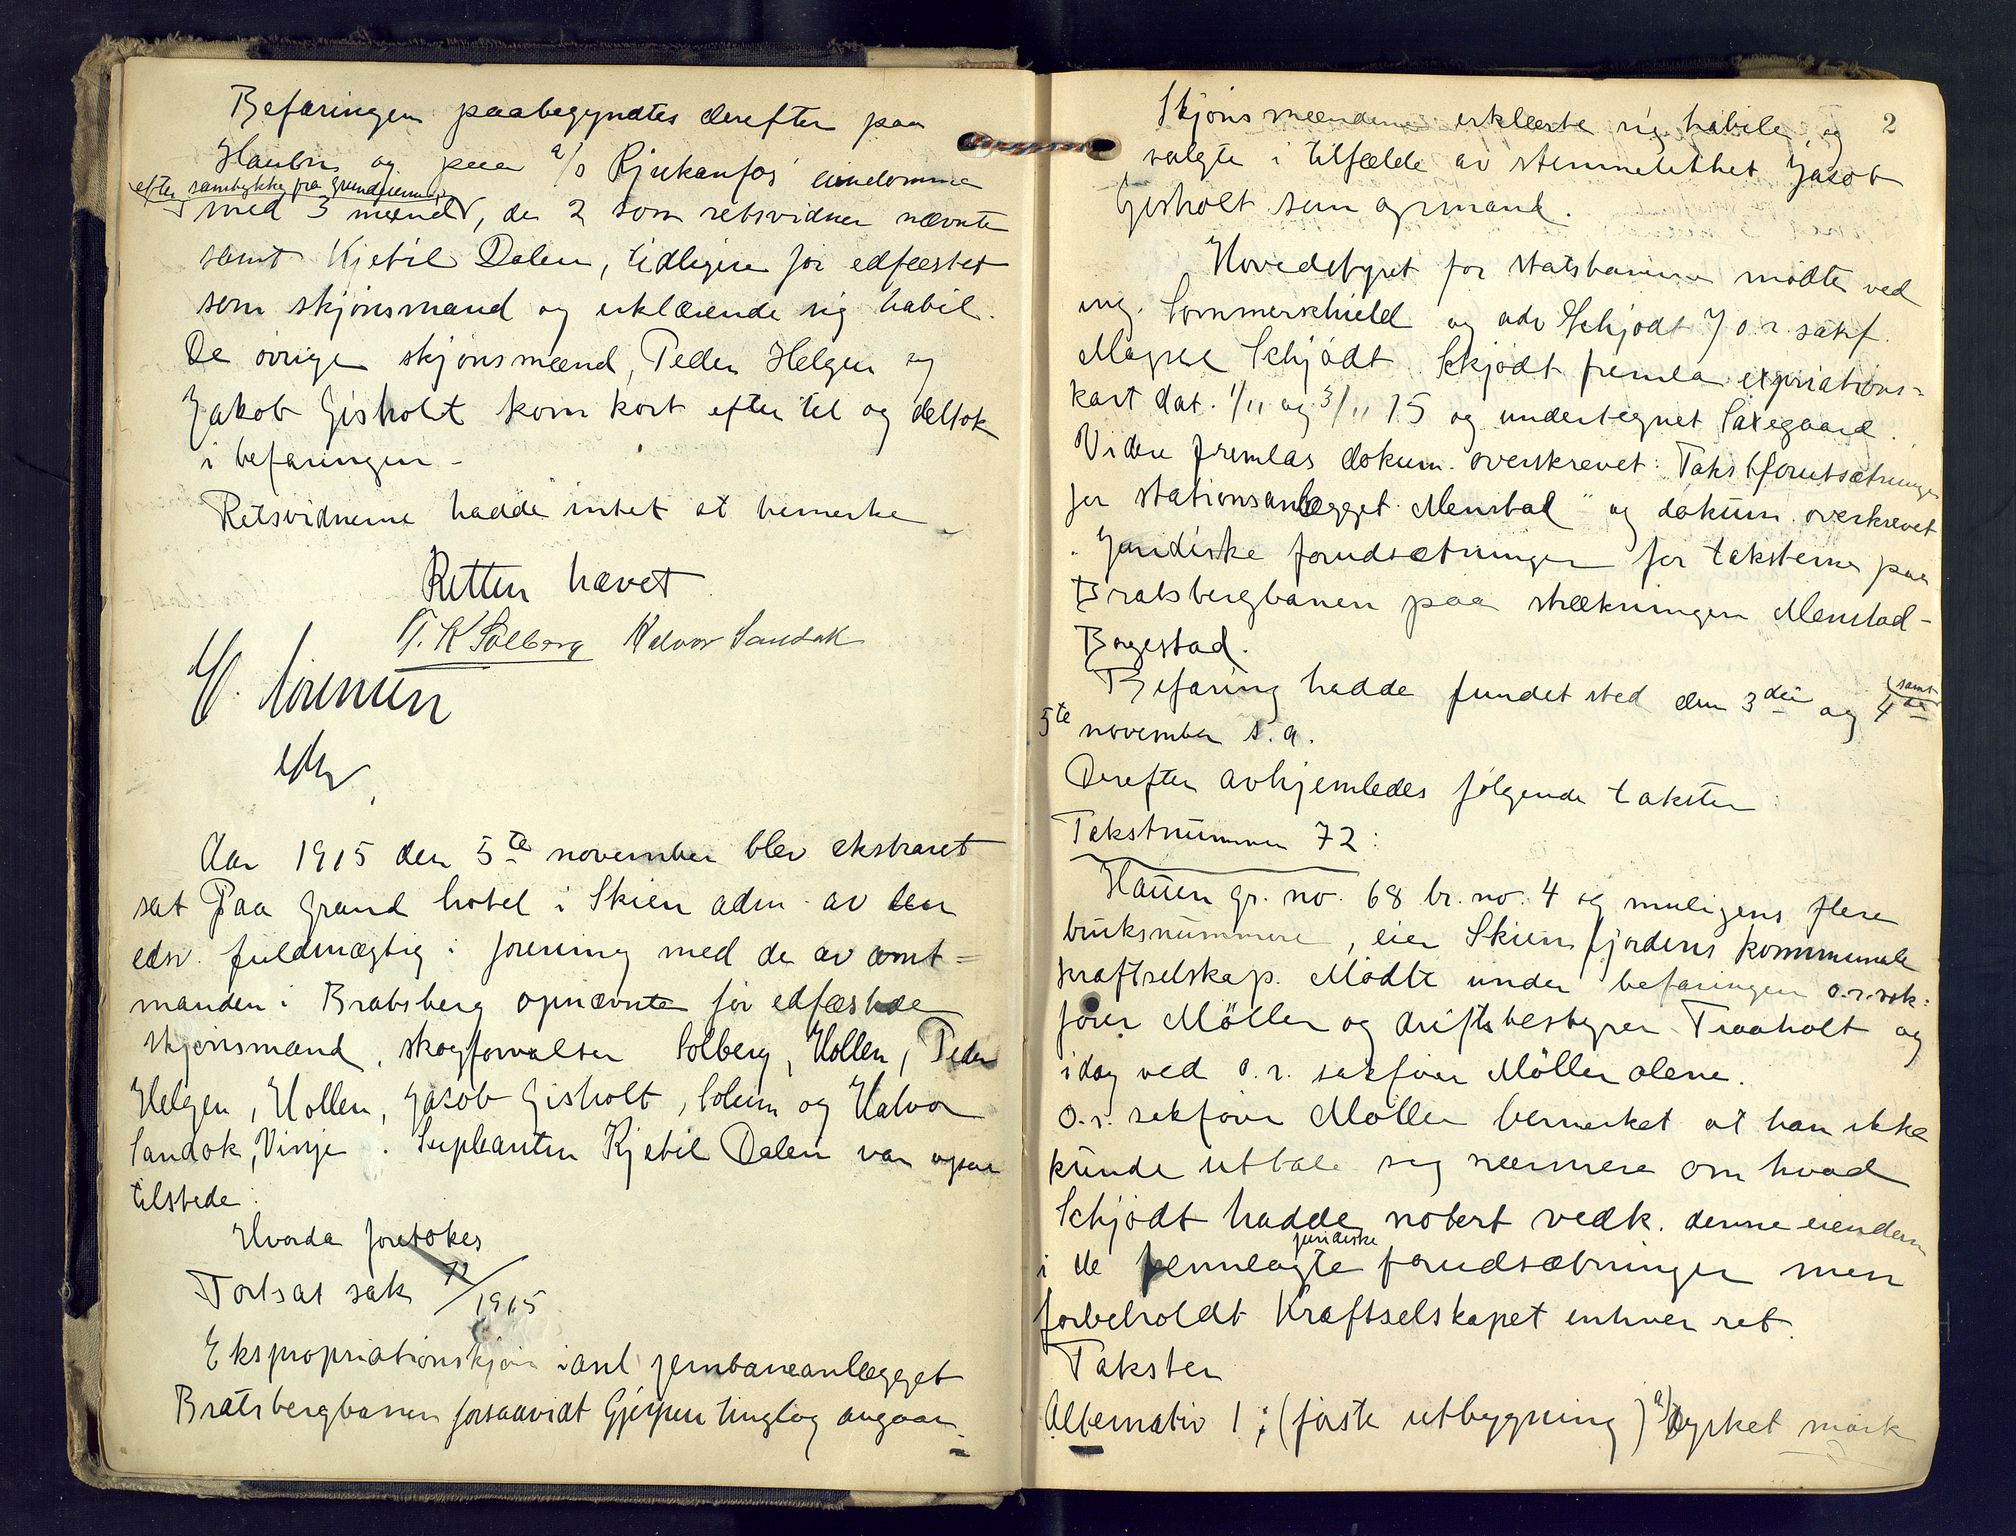 Befaringen paabegyndtes derefter paa
og paa a/s Rjukanfos' eiendomme
efter samtykke fra grundeierne
med 3 mænd, de 2 som retsvidner nævnte
samt Kjetil Dalen, tidligere før edfæstet
som skjønsmand og erklærende sig habil.
De øvrige skjønsmænd, Peder Helgen og
Jakob Gisholt kom kort efter til og deltok
i befaringen -
Retsvidnerne hadde intet at bemerke
Retten hævet
T. K Solberg Halvor Sandok
H. Sørensen
edsv.
Aar 1915 den 5te november blev ekstraret
sat Paa Grand hotel i Skien adm. av den
edsv. fuldmægtig i forening med de av amt=
manden i Bratsberg opnævnte før edfæstede
skjønsmænd, skogforvalter Solberg, Hollen, Peder
Helgen, Hollen, Jacob Gisholt, Solum og Halvor
Sandok, Vinje. Suplanten Kjetil Dalen var ogsaa
tilstede.
Hvorda foretokes
Fortsat sak 72/1915
Ekspropriationskjøn i anl jernbaneanlægget
Bratsbergbanen forsaavidt Gjerpen tinglag angaar.
2
Skjønsmændene erklærte sig habile og
valgte i tilfælde av stemmelikhet Jacob
Gisholt som opmand.
Hovedstyret for statsbanene mødte ved
ing. Sommerschield og adv Schjødt f o. r. sakf.
Magne Schjødt. Schjødt fremla expriations-
kart dat. 1/11 og 3/11 15 og undertegnet Saxegaard.
Videre fremlas dokum. overskrevet: Takstforutsætninger
for stationsanlægget Menstad" og dokum overskrevet
"Juridiske forudsætninger for taksterne paa
Bratsbergbanen paa strækningen Menstad -
Borgestad.
Befaring hadde fundet sted den 3die og 4de (samt
5te november s. a.
Derefter avhjemledes følgende takster:
Takstnummer 72:
Hauen gr. no. 68 br. no. 4 og muligens flere
bruksnummere, eier Skiensfjordens kommunale
kraftselskap. Mødte under befaringen o.r.sak=
fører Møller og driftsbestyrer Traaholt og
idag ved o. r. sakfører Møller alene.
O. r. sakfører Møller bemerket at han ikke
kunde uttale sig nærmere om hvad
Schjødt hadde notert vedk. denne eiendom
i de fremlagte juridiske forudsætninger men
forbeholdt Kraftselskapet enhver ret.
Takster
Alternativ 1: (første utbygning) a/ Dyrket mark